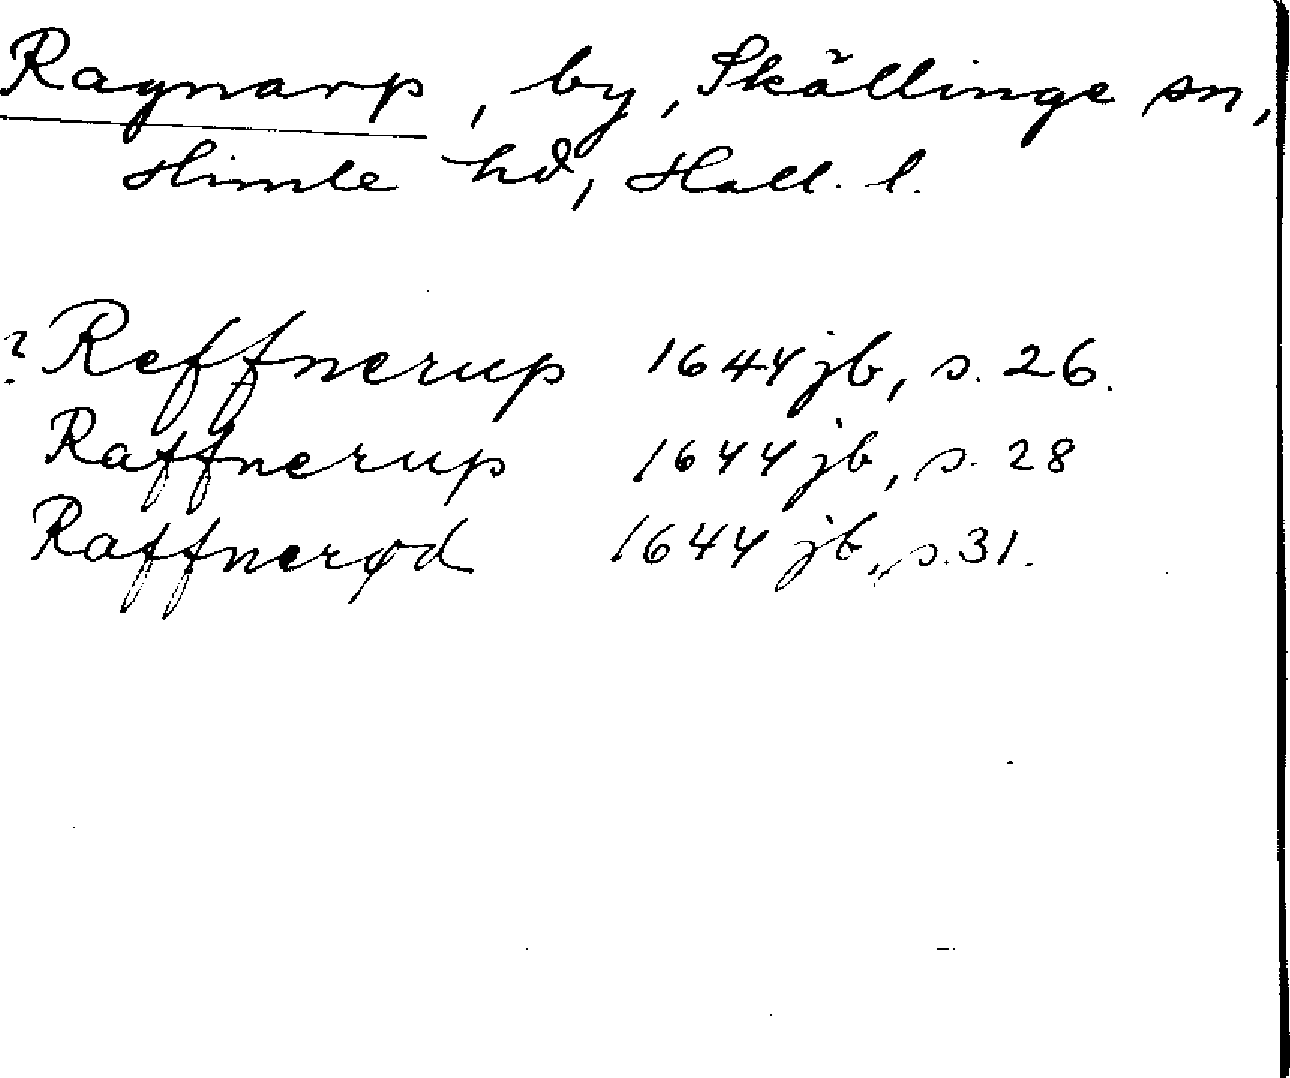 Ragnarp, by, Skällinge sn,
Himle hd, Hall. l.
? Reffnerup 1644 jb, s. 26.
Raffnerup 1644 jb, s. 28
Raffnerød 1644 jb, s. 31.